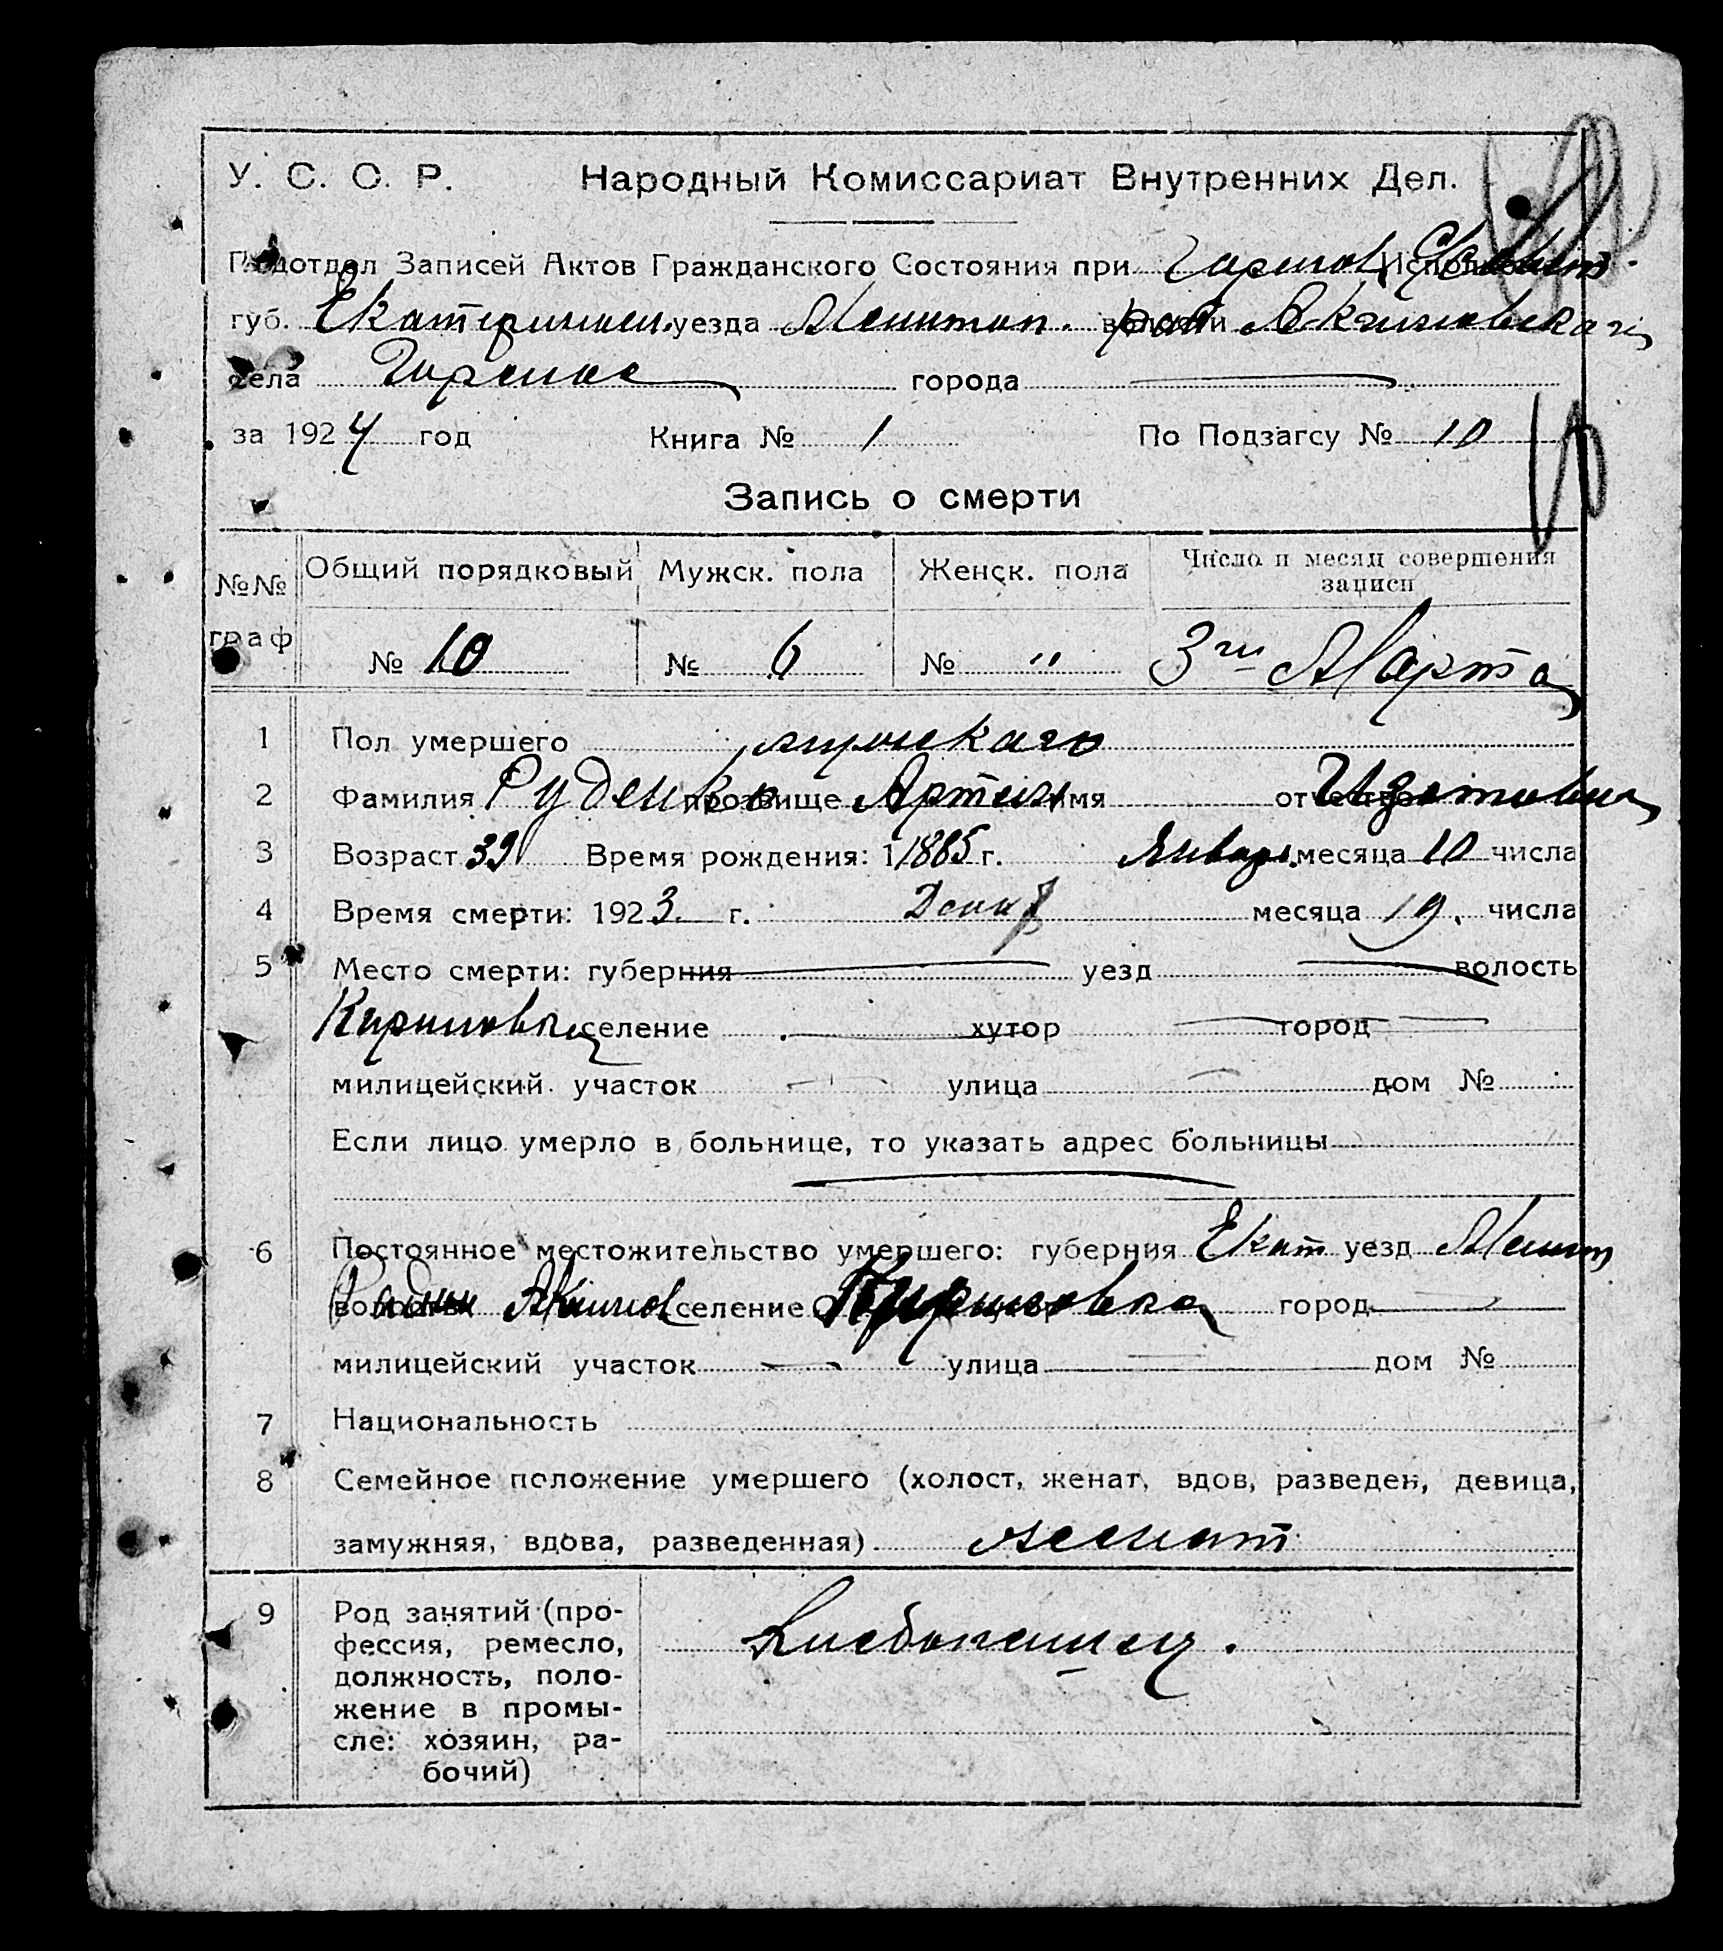 У. С. С. Р. Народный Комиссариат Внутренних Дел.
Подотдел Записей Актов Гражданского Состояния при
губ. Екатеринослав. уезда Мелитоп. Акимовскаго
села города
за 1924 год Книга № 1 По Подзагсу № 10
Запись о смерти
№№ граф Общий порядковый Мужск. пола Женск. пола Число и месяц совершения записи
№ 10 № 6 № " 3го Марта
1 Пол умершего мужскаго
2 Фамилия Руденко прозвище Артем имя отчество Изотович
3 Возраст 39 Время рождения: 1 1885 г. Январ. месяца 10 числа
4 Время смерти: 1923 г. Декаб месяца 19. числа
5 Место смерти: губерния уезд волость
селение хутор город
милицейский участок улица дом №
Если лицо умерло в больнице, то указать адрес больницы
6 Постоянное местожительство умершего: губерния Екат уезд Мелит
волость Акимов селение город
милицейский участок улица дом №
7 Национальность
8 Семейное положение умершего (холост, женат, вдов, разведен, девица,
замужняя, вдова, разведенная) женат
9 Род занятий (про-
фессия, ремесло, Хлебопашец.
должность, поло-
жение в промы-
сле: хозяин, ра-
бочий)